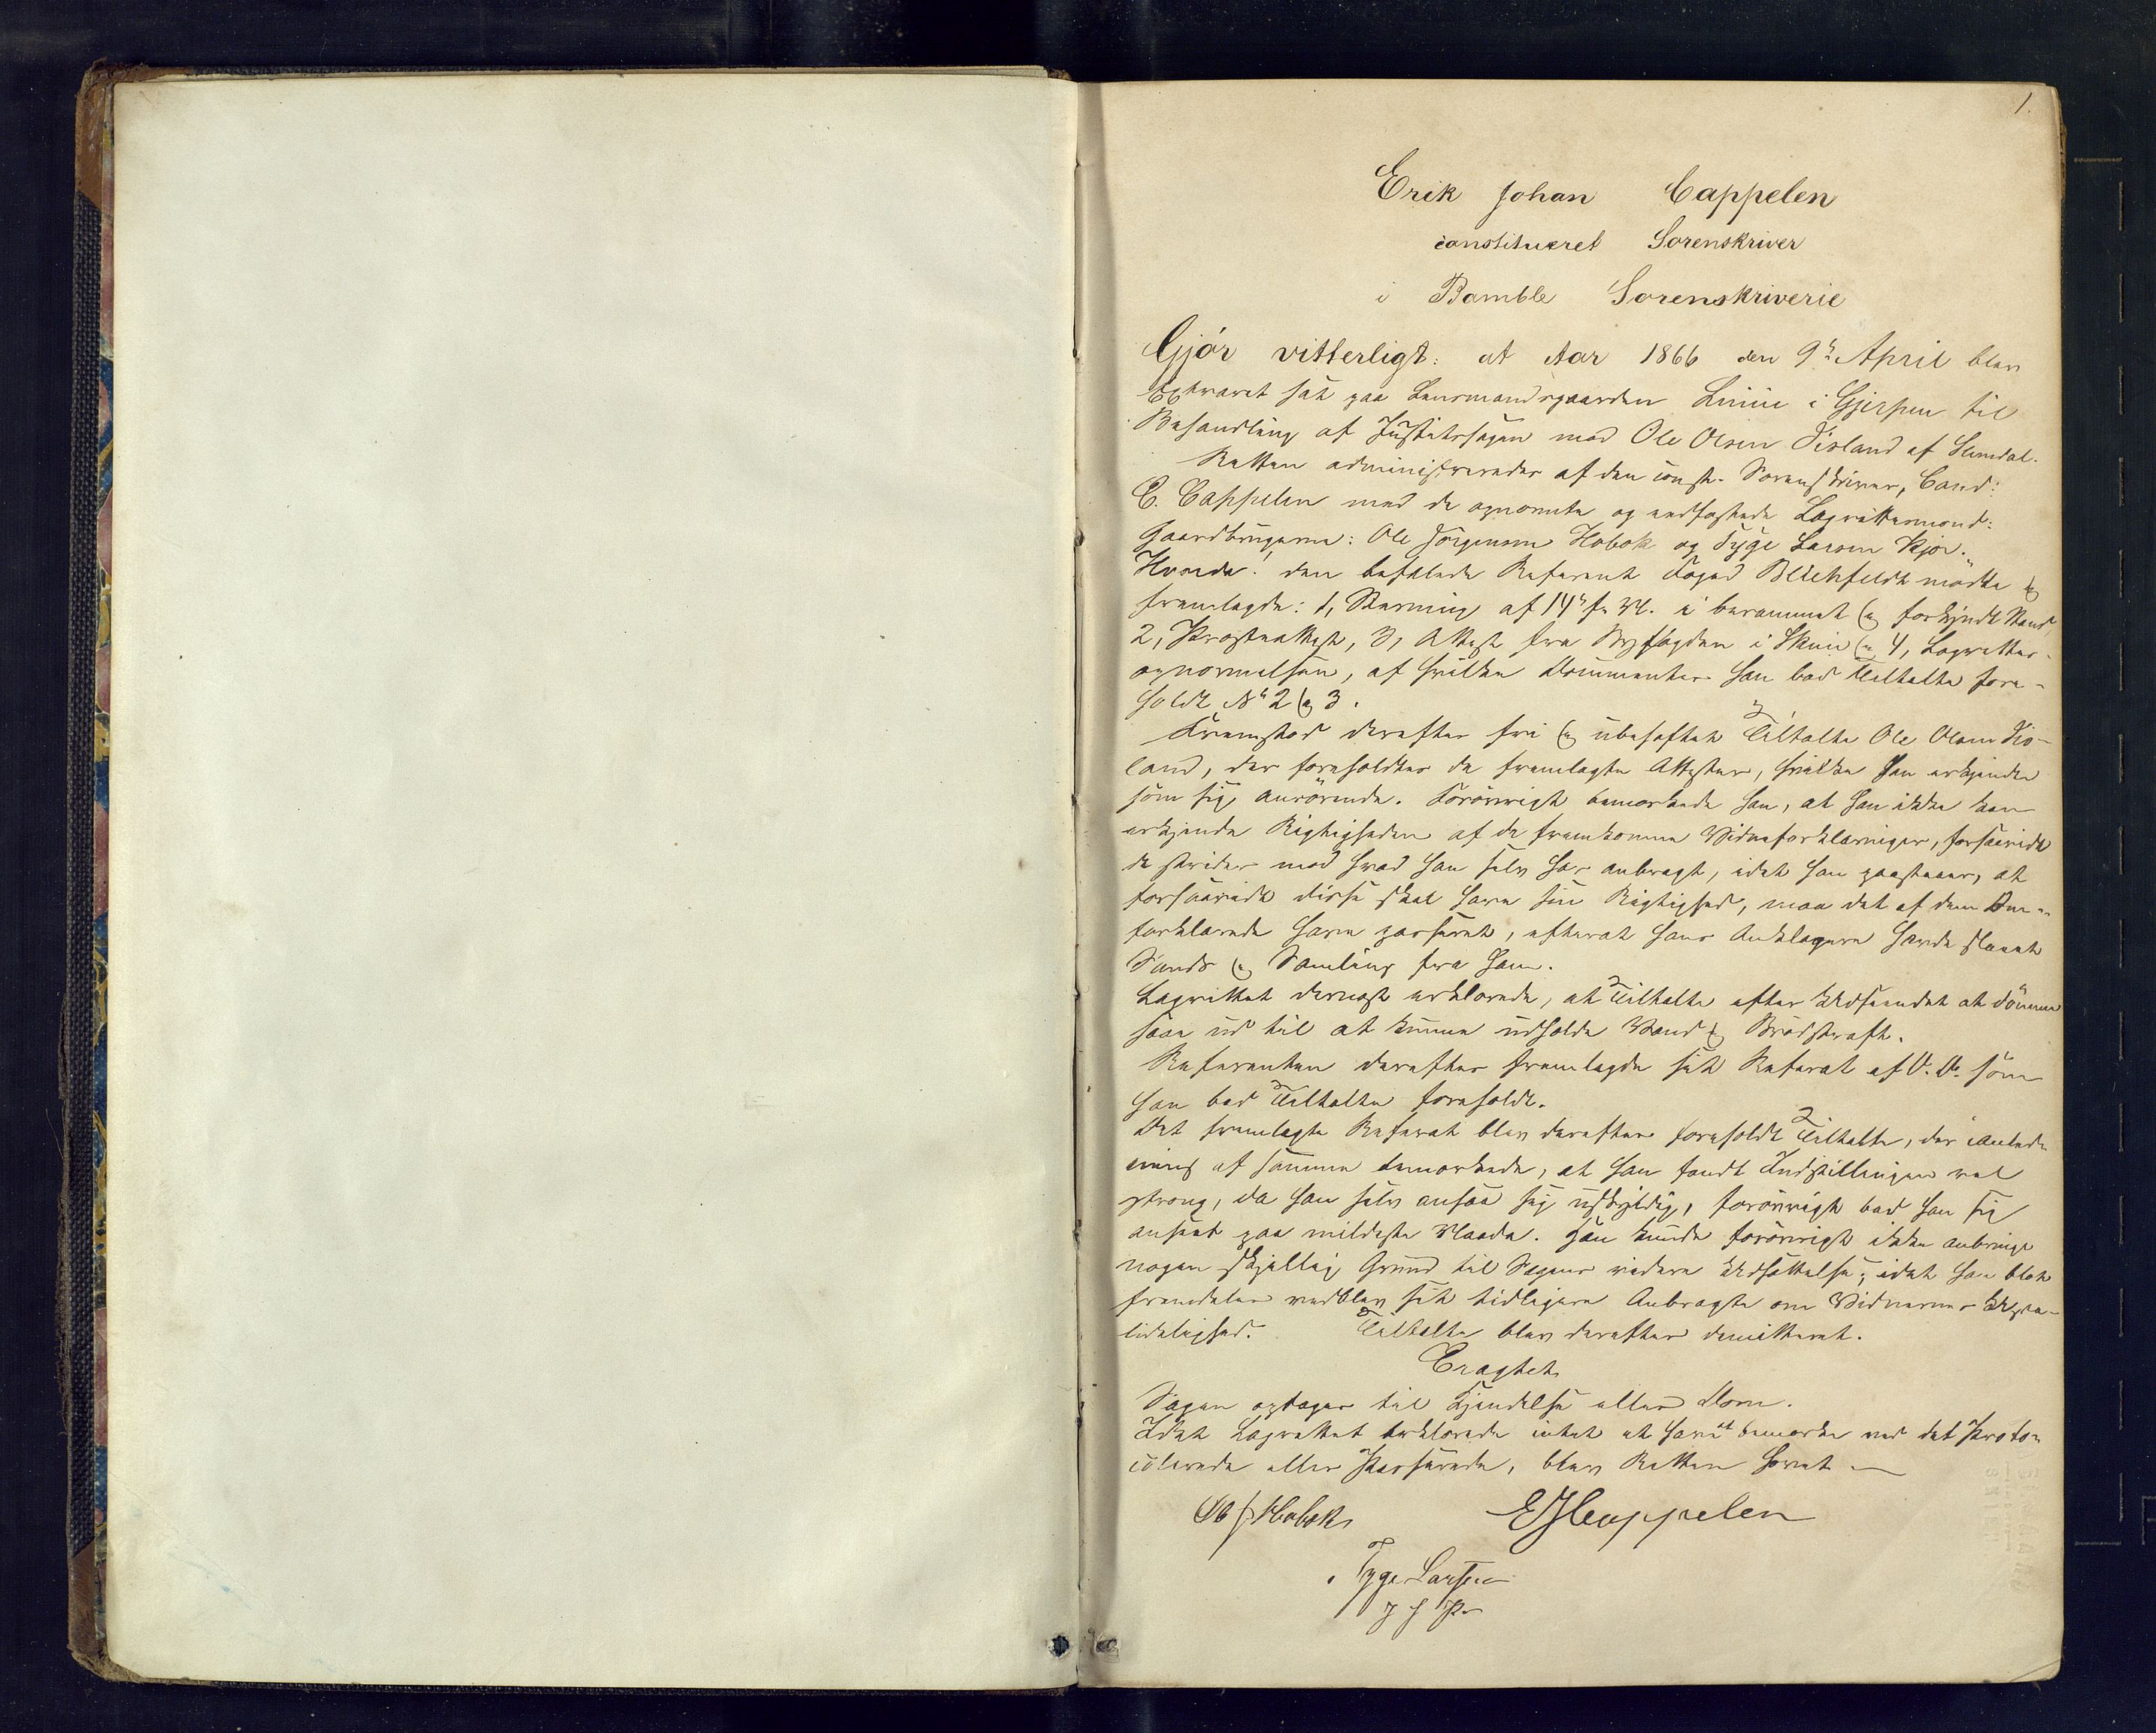 1.
Erik Johan Cappelen
constitueret Sorenskriver
i Bamble Sorenskriverie
Gjör vitterligt: at Aar 1866 den 9de April blev
Extraret sat paa Lensmandsgaarden Limie i Gjerpen til
Behandling af Justitssagen mod Ole Olsen Kisland af Slemdal.
Retten administreredes af den const. Sorenskriver, Cand:
E. Cappelen med de opnevnte og edfæstede Lagrettesmænd:
Gaardbrugerne: Ole Jörgensen Hobæk og Tyge Larsen Kjær.
Hvorda! den befalede Referent Foged Blichfeldt mödte og
fremlagde: 1, Stevning af 14de f. M. i berammet og forkyndt Stand,
2, Presteattest, 3, Attest fra Byfogden i Skien og 4, Lagrettes-
opnevnelsen, af hvilke Documenter han bad Tiltalte fore-
holdt No 2 og 3.
Fremstod derefter fri og ubehæftet Tiltalte Ole Olsen Kis-
land, der foreholdtes de fremlagte Attester, hvilke han erkjendte
som sig anrörende. Forövrigt bemærkede han, at han ikke kan
erkjende Rigtigheden af de fremkomne Vidneforklaringer, forsaavidt
de strider mod hvad han selv har anbragt, idet han paastaar, at
forsaavidt disse skal have sin Rigtighed, maa det af dem Om-
forklarede være passeret, efterat hans Anklagere havde slaaet
Sands og Samling fra ham.
Lagrettet dernæst erklærede, at Tiltalte efter Udseendet at dömme
saae ud til at kunne udholde Vand og Brödstraff.
Referenten derefter fremlagde sit Referat af D. D. som
han bad Tiltalte foreholdt.
Det fremlagte Referat blev derefter foreholdt Tiltalte, der i Anled-
ning af samme bemærkede, at han fandt Indstillingen vel
streng, da han selv ansaa sig uskyldig, forövrigt bad han sig
anseet paa mildeste Maade. Han kunde forövrigt ikke anbringe
nogen skjellig Grund til Sagens videre Udsættelse, idet han blot
fremdeles vedblev sit tidligere Anbragte om Vidnernes Upaa-
lidelighed. Tiltalte blev derefter demitteret.
Eragtet
Sagen optages til Kjendelse eller Dom.
Idet Lagrettet erklærede intet at have at bemærke ved det Proto-
collerede eller Passerede, blev Retten hævet
O J Hobæk EJCappelen
Tyge Larsen